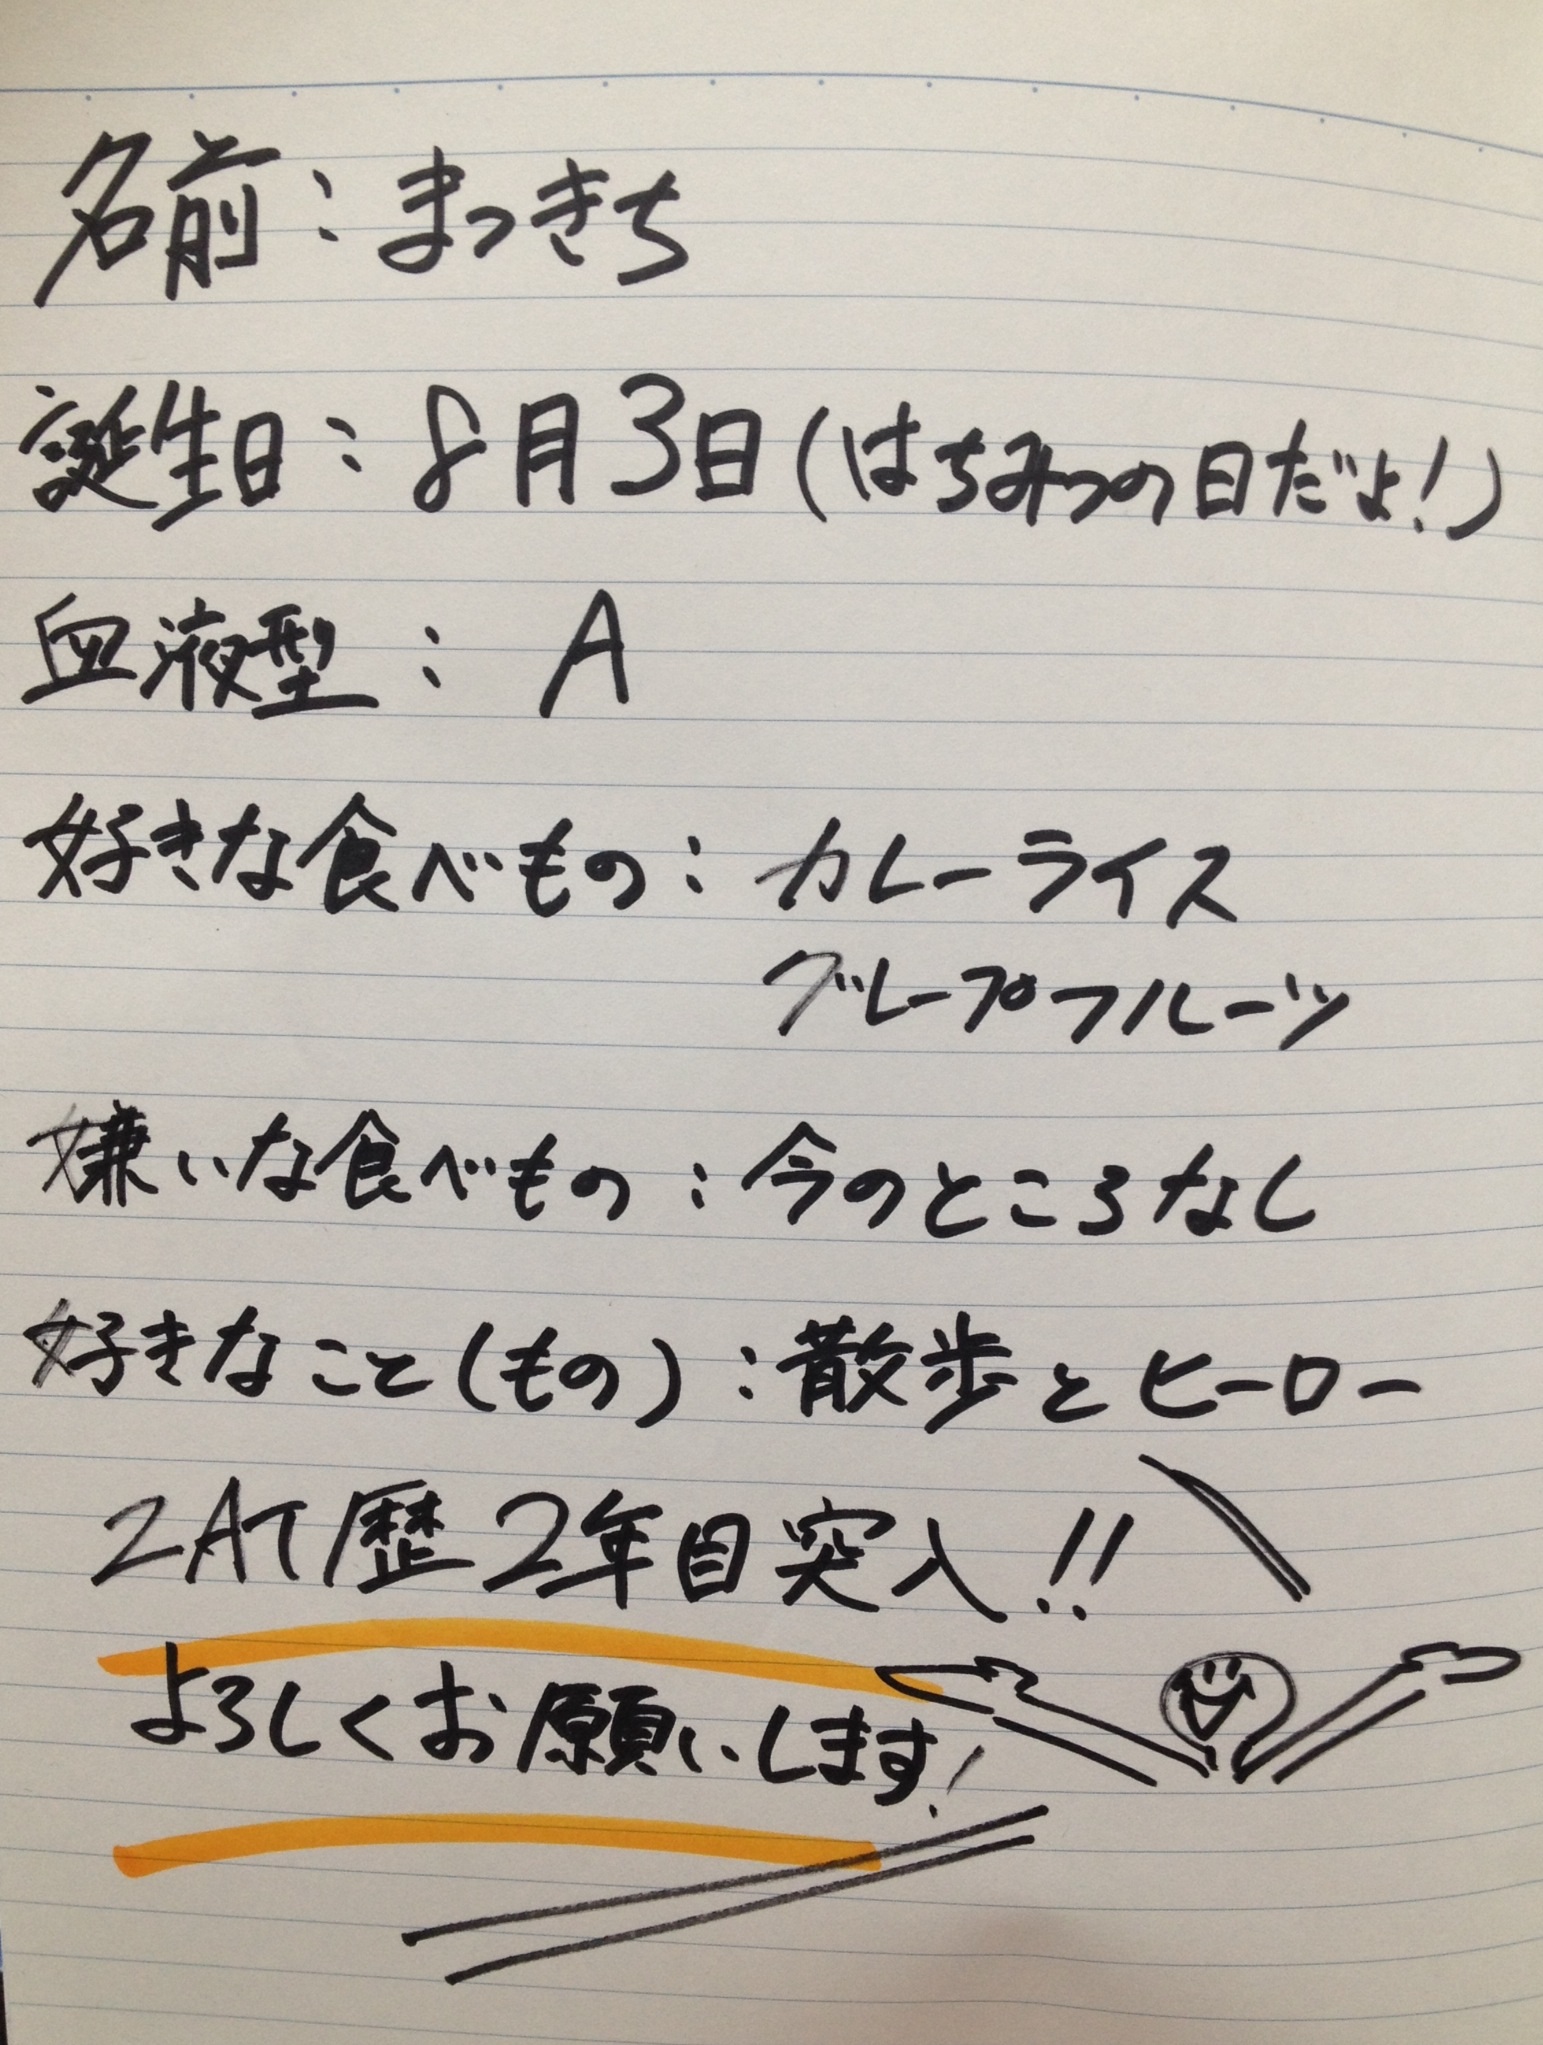 名前：まつきち
誕生日：8月3日(はちみつの日だよ!)
血液型：A
好きな食べもの：カレーライス
グレープフルーツ
嫌いな食べもの：今のところなし
好きなこと(もの)：散歩とヒーロー
ZAT歴2年目突入!!
よろしくお願いします!